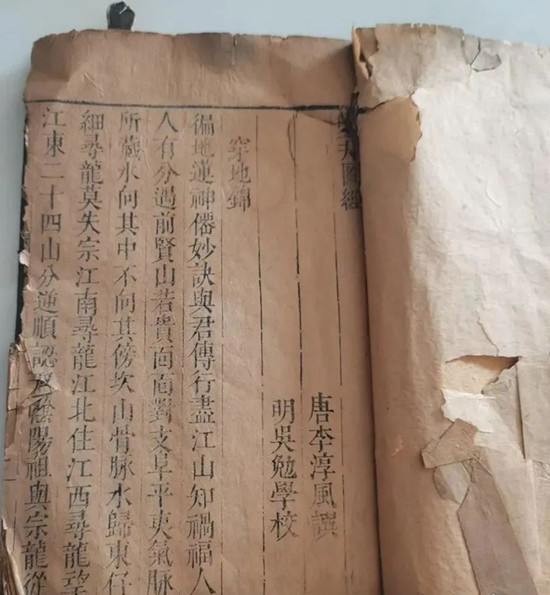 天圖經
唐李淳風譔
明吳勉學校
穿地錦
徧地蓮神僊妙訣與君傳行盡江山知禍福人
人有分過前賢山若貴面面對支阜平夷氣脉
所藏水向其中不向其傍坎山骨脉水歸東仔
細尋龍莫失宗江南尋龍江北住江西尋龍望
江東二十四山分逆順認取陰陽祖與宗龍從